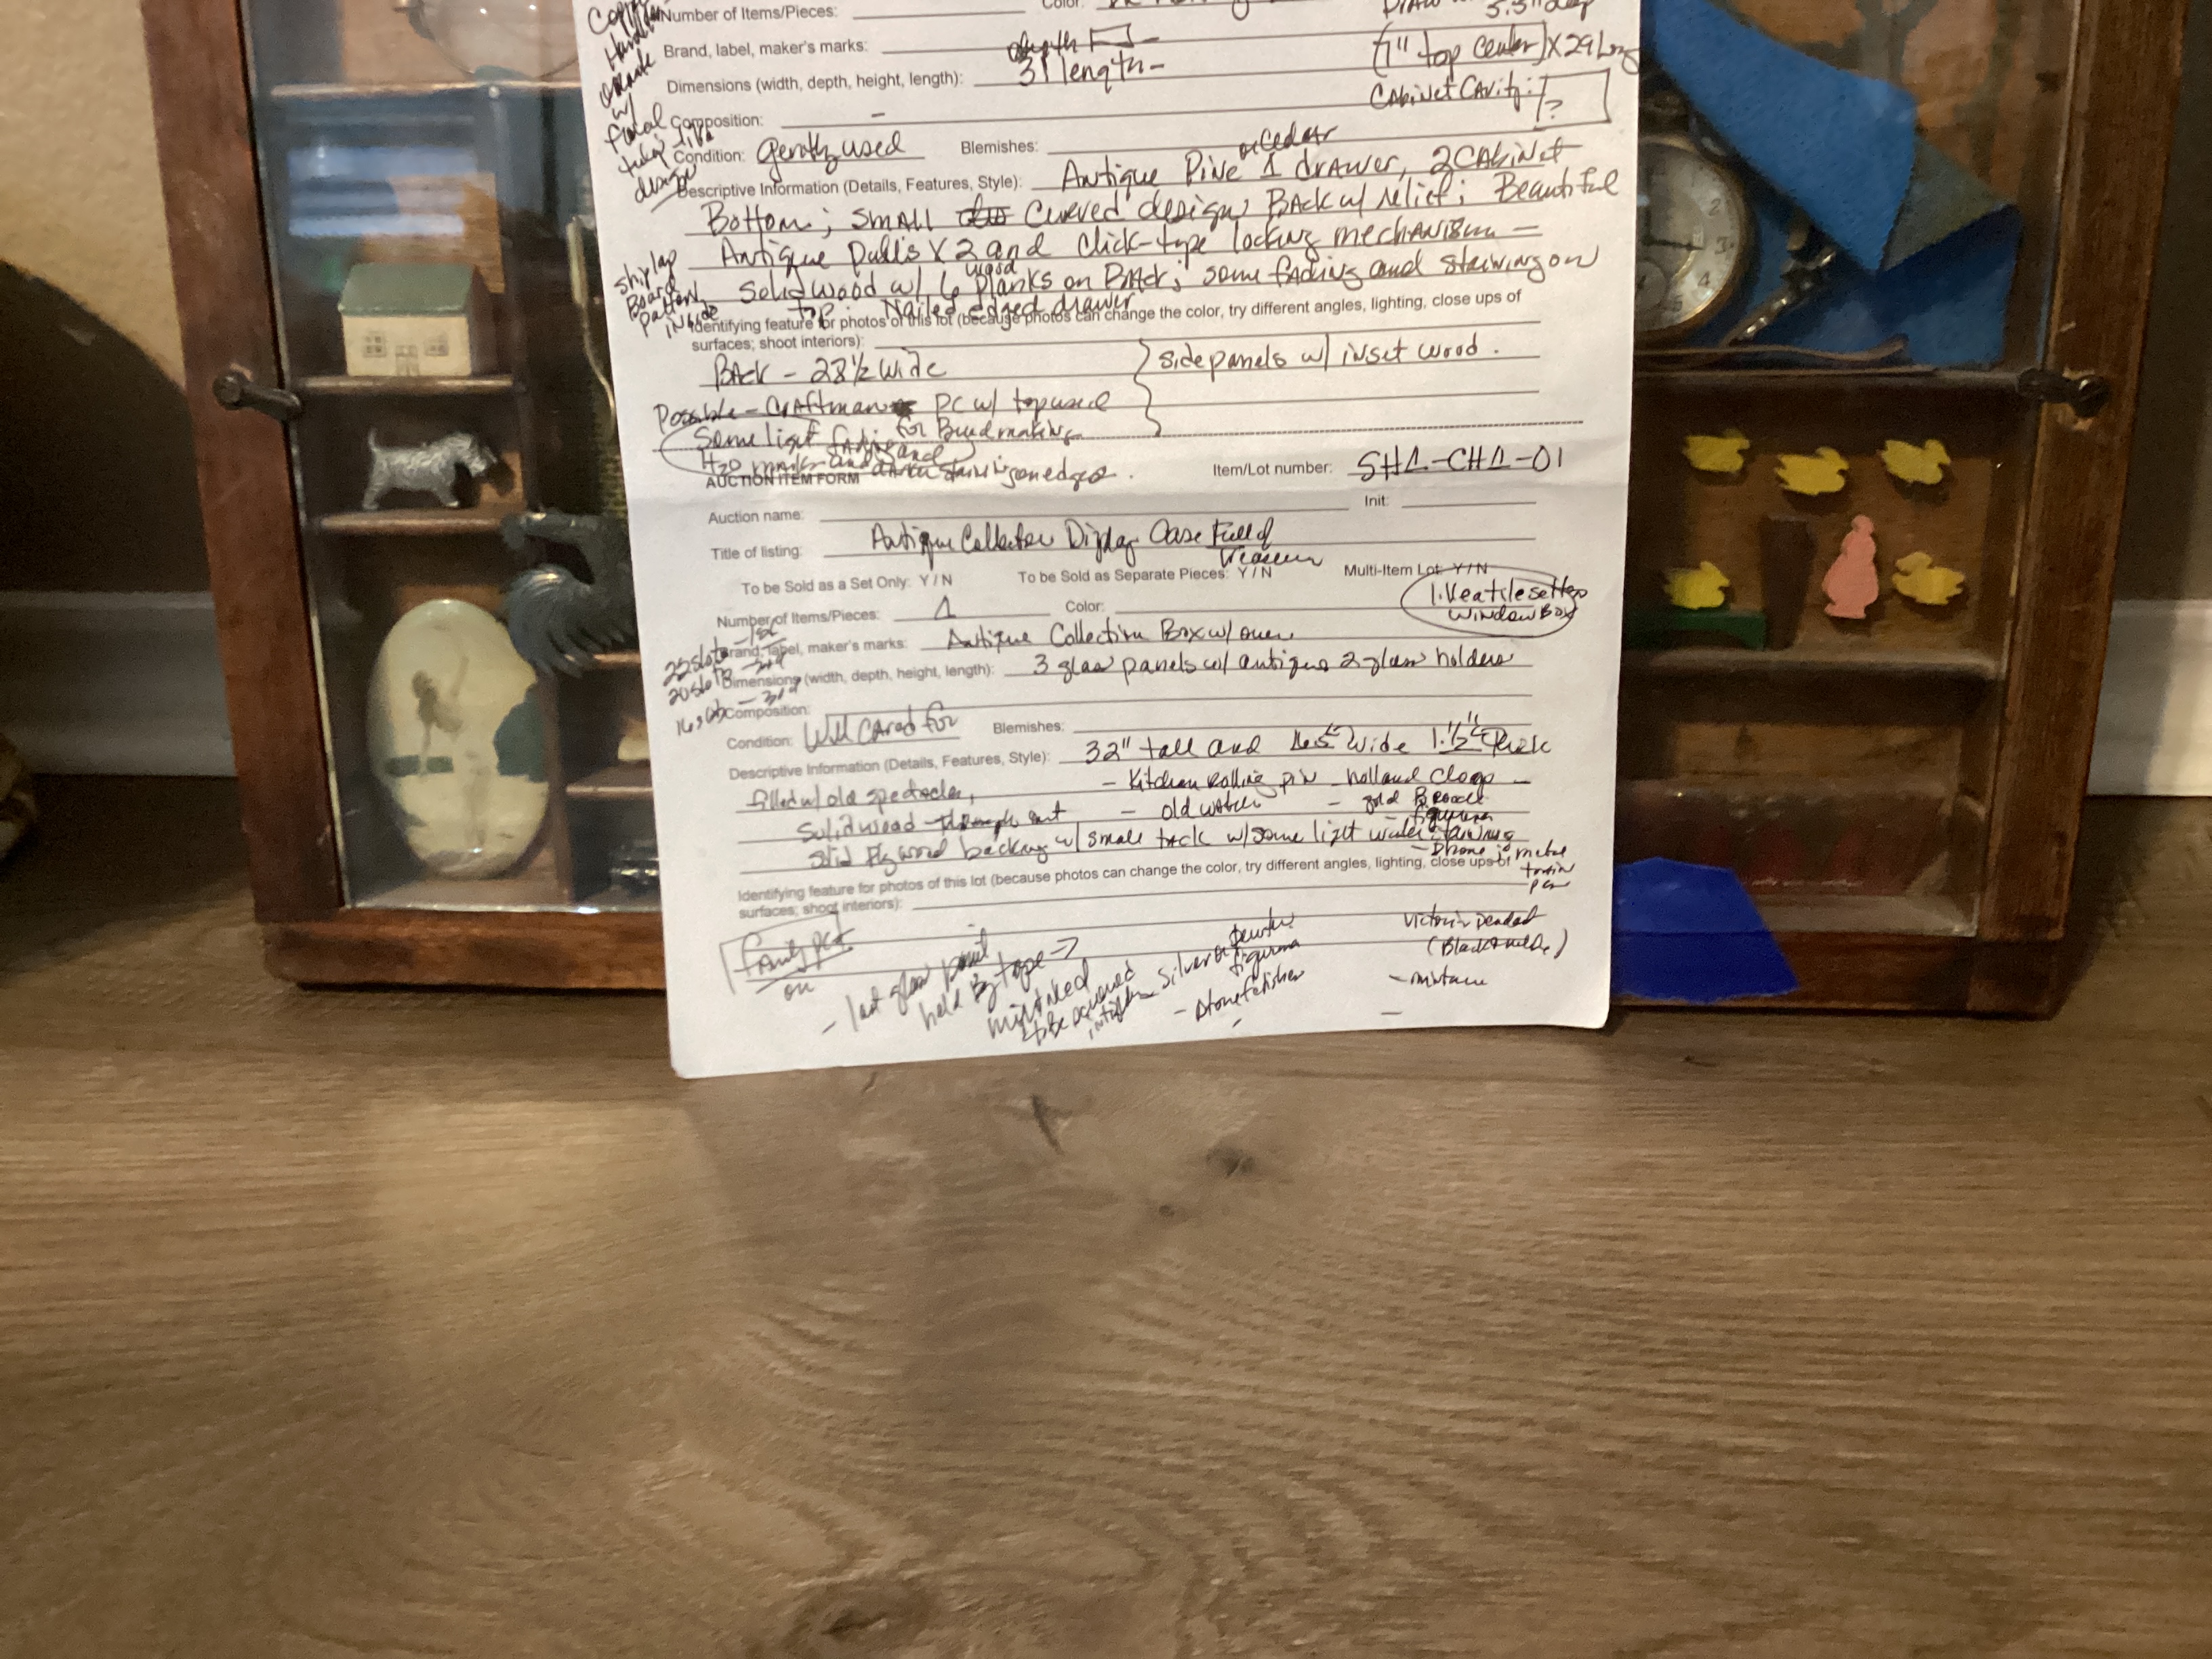 Number of Items/Pieces:
Color:
Brand, label, maker's marks: depth
(1" top center) X 29 Long
Dimensions (width, depth, height, length): 31 length-
Cabinet Cavity: ?
Composition: -
Condition: gently used Blemishes:
or Cedar
Descriptive Information (Details, Features, Style): Antique Pine 1 drawer, 2 CABiNet
Bottom; SMALL Curved design BACK w/ relief; Beautiful
Antique Pulls X2 and Click-type locking mechanism -
Solid wood w/ 6 wood planks on BACK; some fading and staining on
top. Nailed edged drawer
Shiplap
Board
pattern
inside
Identifying feature for photos of this lot (because photos can change the color, try different angles, lighting, close ups of
surfaces; shoot interiors):
BACK - 28½ wide
side panels w/ inset wood.
Possible - Craftman PC w/ top used
for Breadmaking
Some light fading and
H2O marks and staining on edges.
AUCTION ITEM FORM
Item/Lot number: SH1-CH1-01
Auction name:
Init:
Title of listing: Antique Collector Display Case Full of
To be Sold as a Set Only: Y / N To be Sold as Separate Pieces: Y / N Multi-Item Lot: Y / N
Number of Items/Pieces: 1 Color:
Window Box
Brand, label, maker's marks: Antique Collection Box w/ over
Dimensions (width, depth, height, length): 3 glass panels w/ antique 2 glass holders
Composition:
Condition: Well cared for Blemishes:
Descriptive Information (Details, Features, Style): 32" tall and wide 1.½" thick
filled w/ old spectacles, - Kitchen Rolling pin - holland clogs -
Solid wood throughout - old watch - gold Brooch
figurine
Solid Plywood backing w/ small tack w/ some light water staining
- metal
Identifying feature for photos of this lot (because photos can change the color, try different angles, lighting, close ups of
surfaces; shoot interiors):
- last glass panel
held By tape →
Silver or pewter
figurine
- Stone fetishes